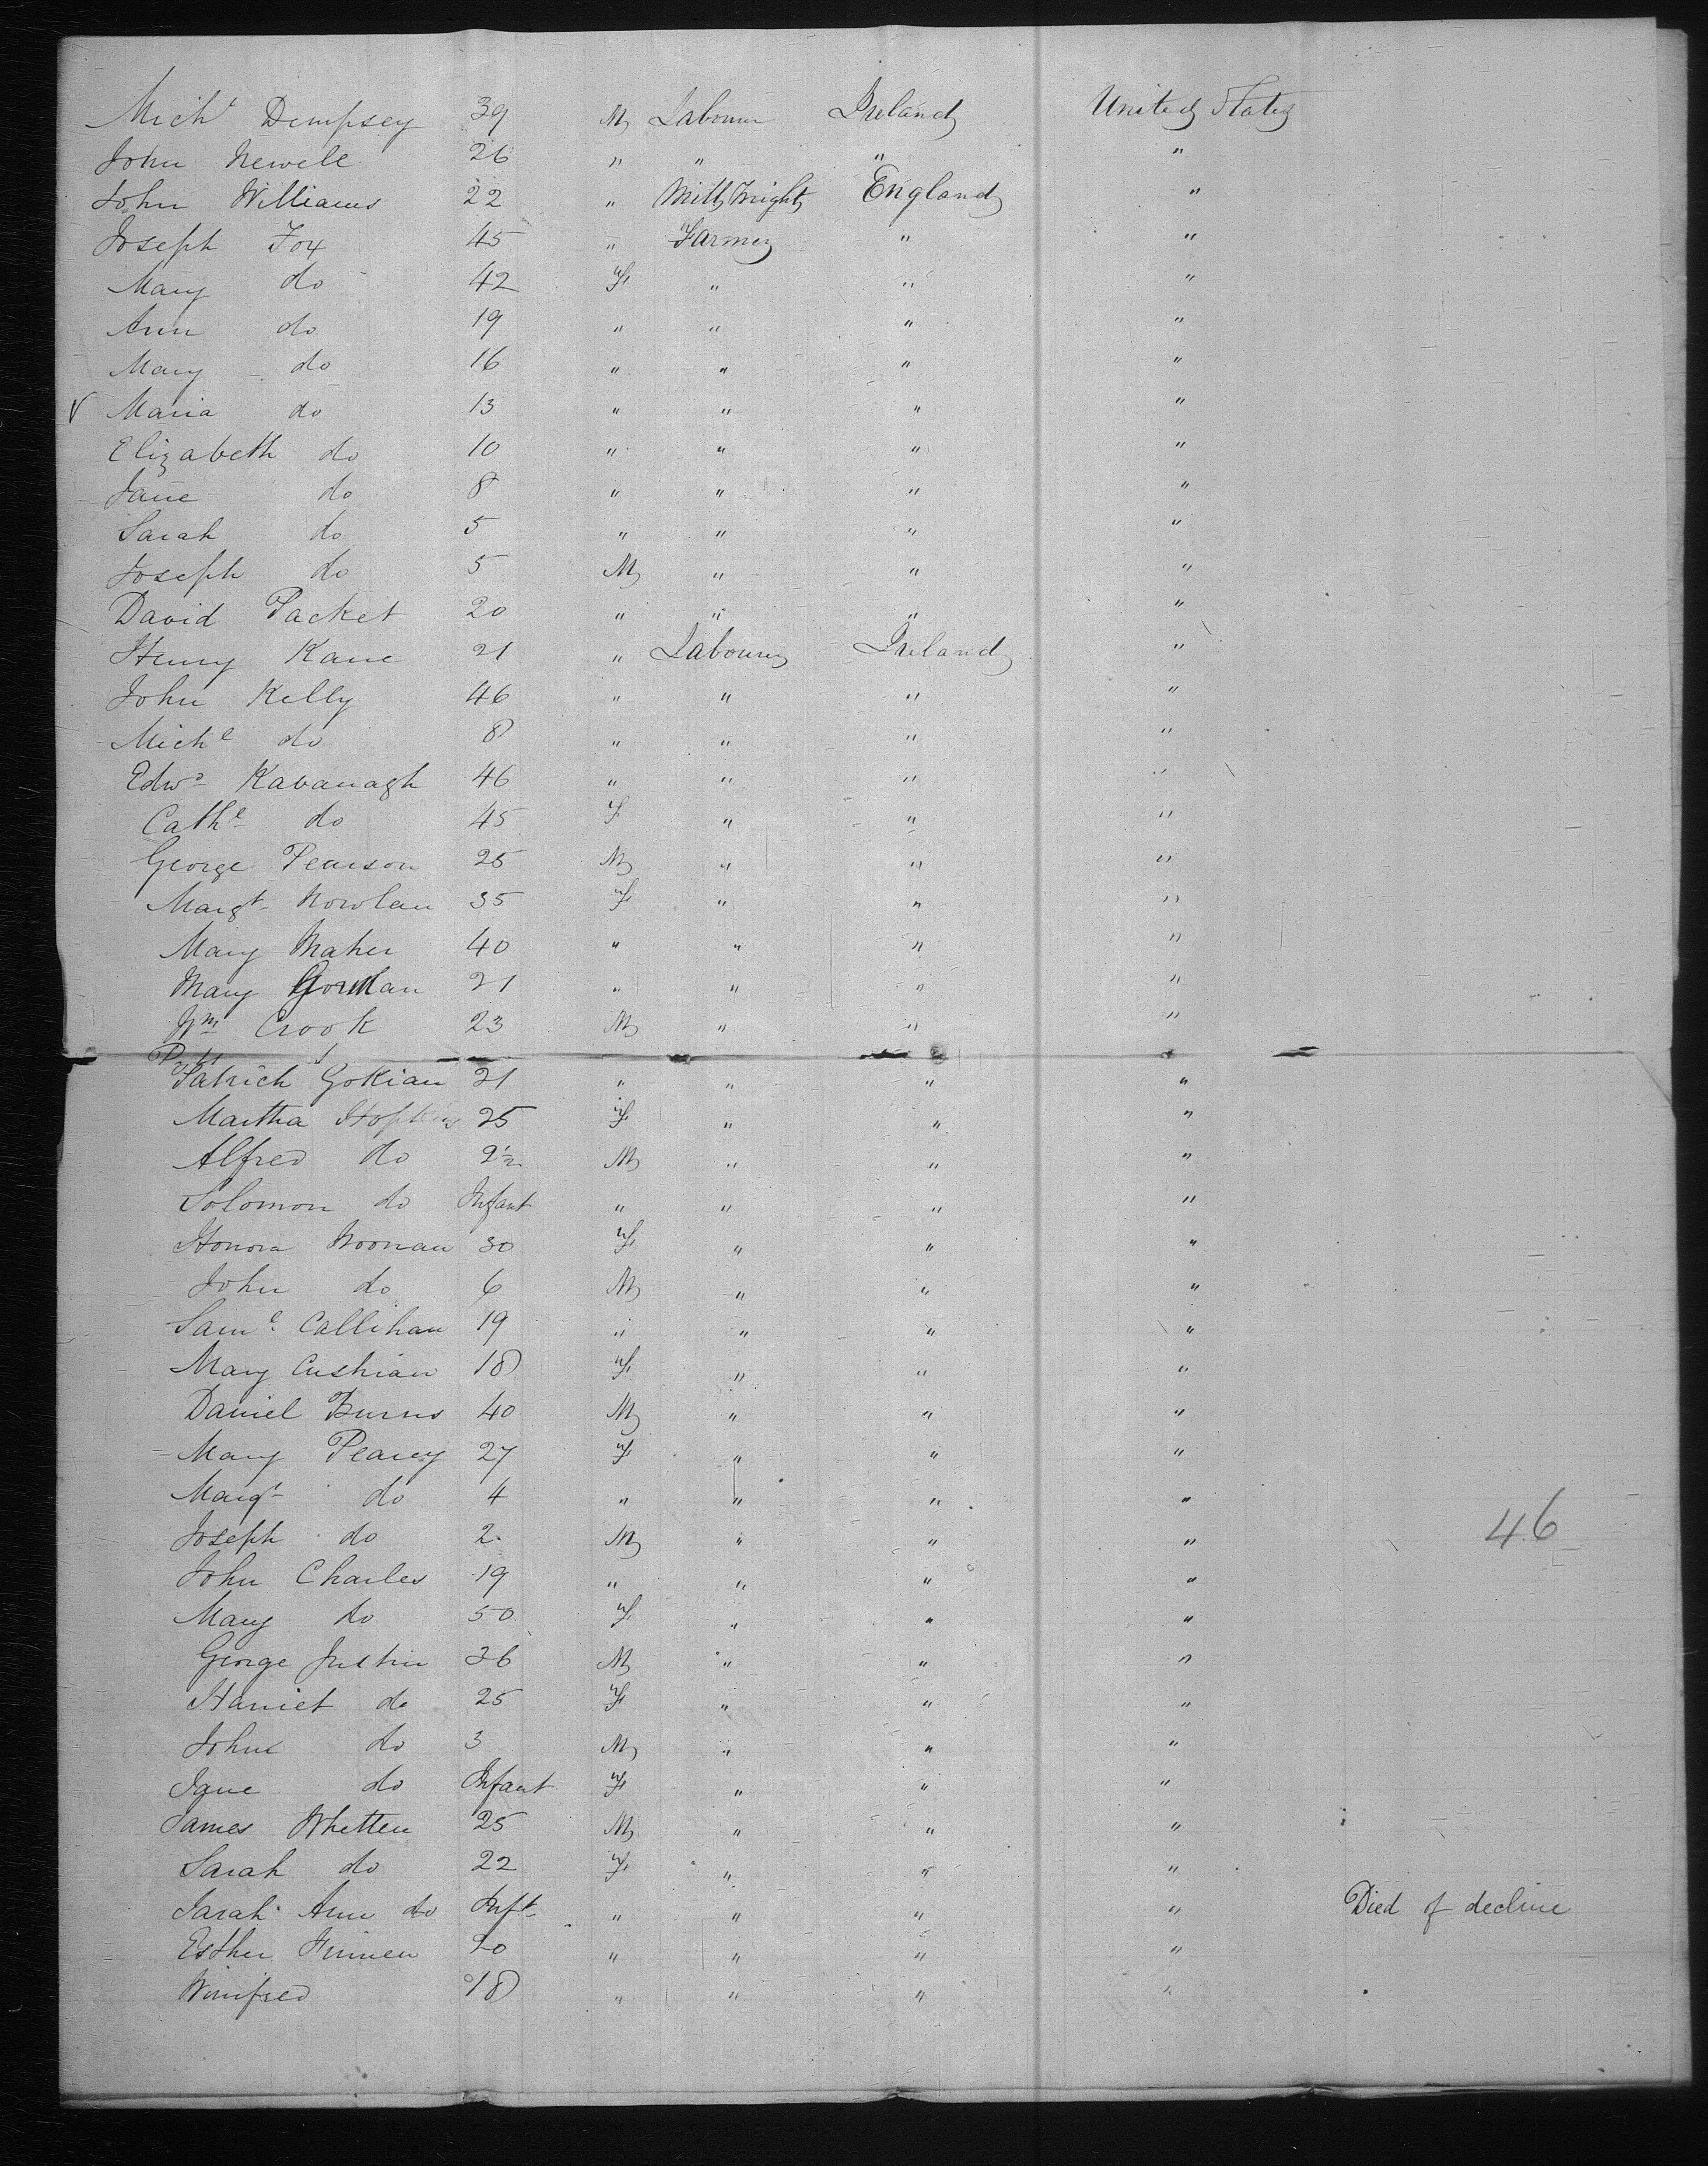 Mich' Dempsey 39 M Labourer Ireland United States
John Newell 26 " " " "
John Williams 22 " Mill Wright England "
Joseph Fox 45 " Farmer " "
Mary do 42 F " " "
Ann do 19 " " " "
Mary do 16 " " " "
√ Maria do 13 " " " "
Elizabeth do 10 " " " "
Jane do 8 " " " "
Sarah do 5 " " " "
Joseph do 5 M " " "
David Packet 20 " " " "
Henry Kane 21 " Labourer Ireland "
John Kelly 46 " " " "
Mich^l do 8 " " " "
Edw^d Kavanagh 46 " " " "
Cath^e do 45 F " " "
George Pearson 25 M " " "
Marg^t Nowlan 35 F " " "
Mary Maher 40 " " " "
Mary 21 " " " "
W^m Crook 23 M " " "
Patrick Gokian 21 " " " "
Martha Hopkins 25 F " " "
Alfred do 2½ M " " "
Solomon do Infant " " " "
Honora Noonan 30 F " " "
John do 6 M " " "
Sam^l Callihan 19 " " " "
Mary Cushian 18 F " " "
Daniel Burns 40 M " " "
Mary Pearcy 27 F " " "
Marg^t do 4 " " " "
Joseph do 2 M " " "
46
John Charles 19 " " " "
Mary do 50 F " " "
George Justin 36 M " " "
Harriet do 25 F " " "
John do 3 M " " "
Jane do Infant F " " "
James Whetten 25 M " " "
Sarah do 22 F " " "
Sarah Ann do Inf^t " " " " Died of decline
Esther 20 " " " "
Winifred 18 " " " "